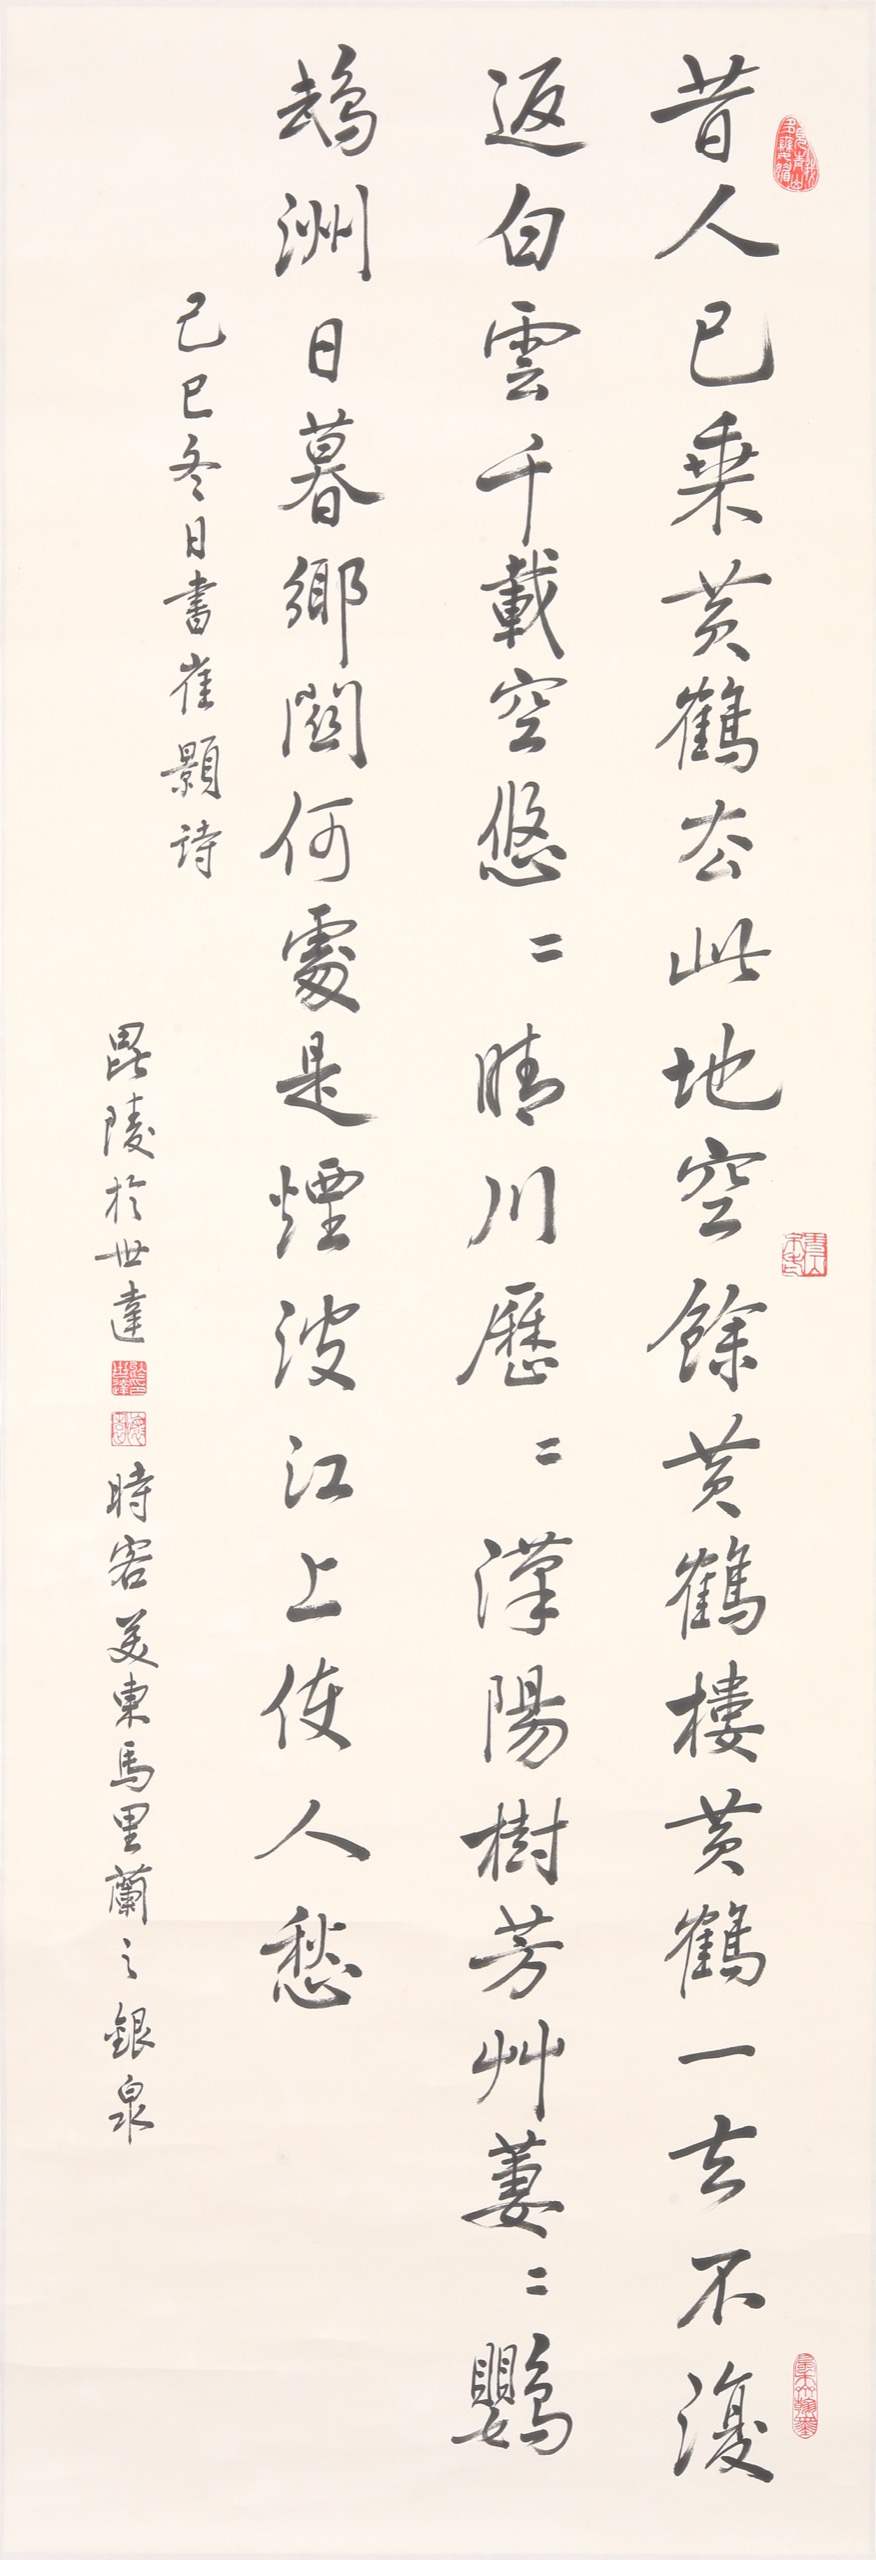 昔人已乘黃鶴去此地空餘黃鶴樓黃鶴一去不復
返白雲千載空悠〻晴川歷〻漢陽樹芳艸萋〻鸚
鵡洲日暮鄉關何處是煙波江上使人愁
己巳冬日書崔顥詩
毘陵於世達
時客美東馬里蘭之銀泉